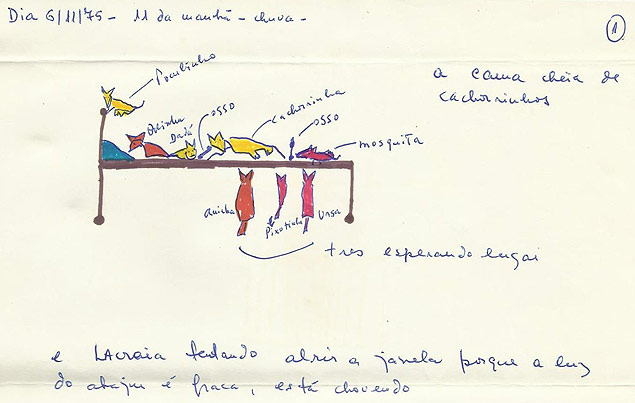 Dia 6/11/75 - 11 da manhã - chuva -
1
Pombinho
a cama cheia de
cachorrinhos
osso
cachorrinha
osso
Dadá
mosquita
Pixotinha
Ursa
tres esperando lugar
e Lacraia tentando abrir a janela porque a luz
do abajur é fraca, está chovendo